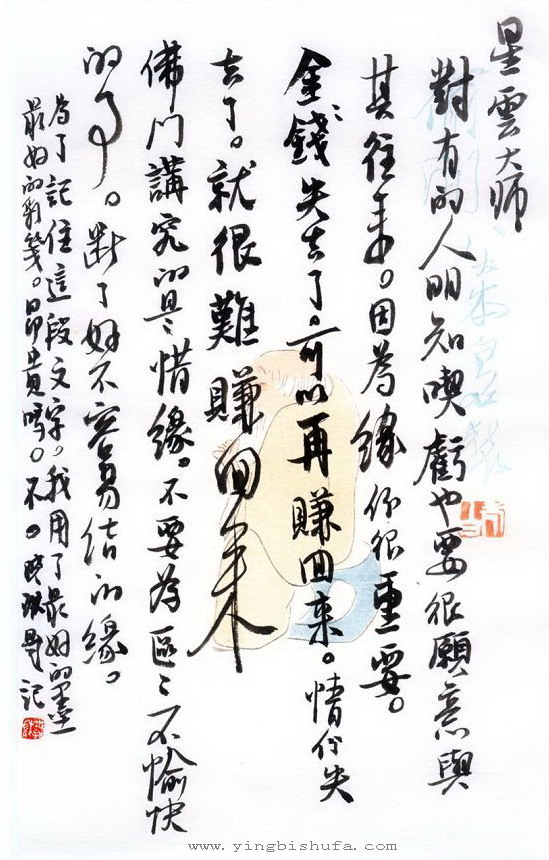 星雲大师
對有的人明知喫虧也要很願意與
其往来。因為緣份很重要。
金錢失去了。可以再賺回来。情份失
去了。就很難賺回来
佛門講究的是惜緣。不要為區々不愉快
的事。断了好不容易结的緣。
為了記住這段文字。我用了最好的墨
最好的彩箋。昂貴嗎。不。
記
www.yingbishufa.com